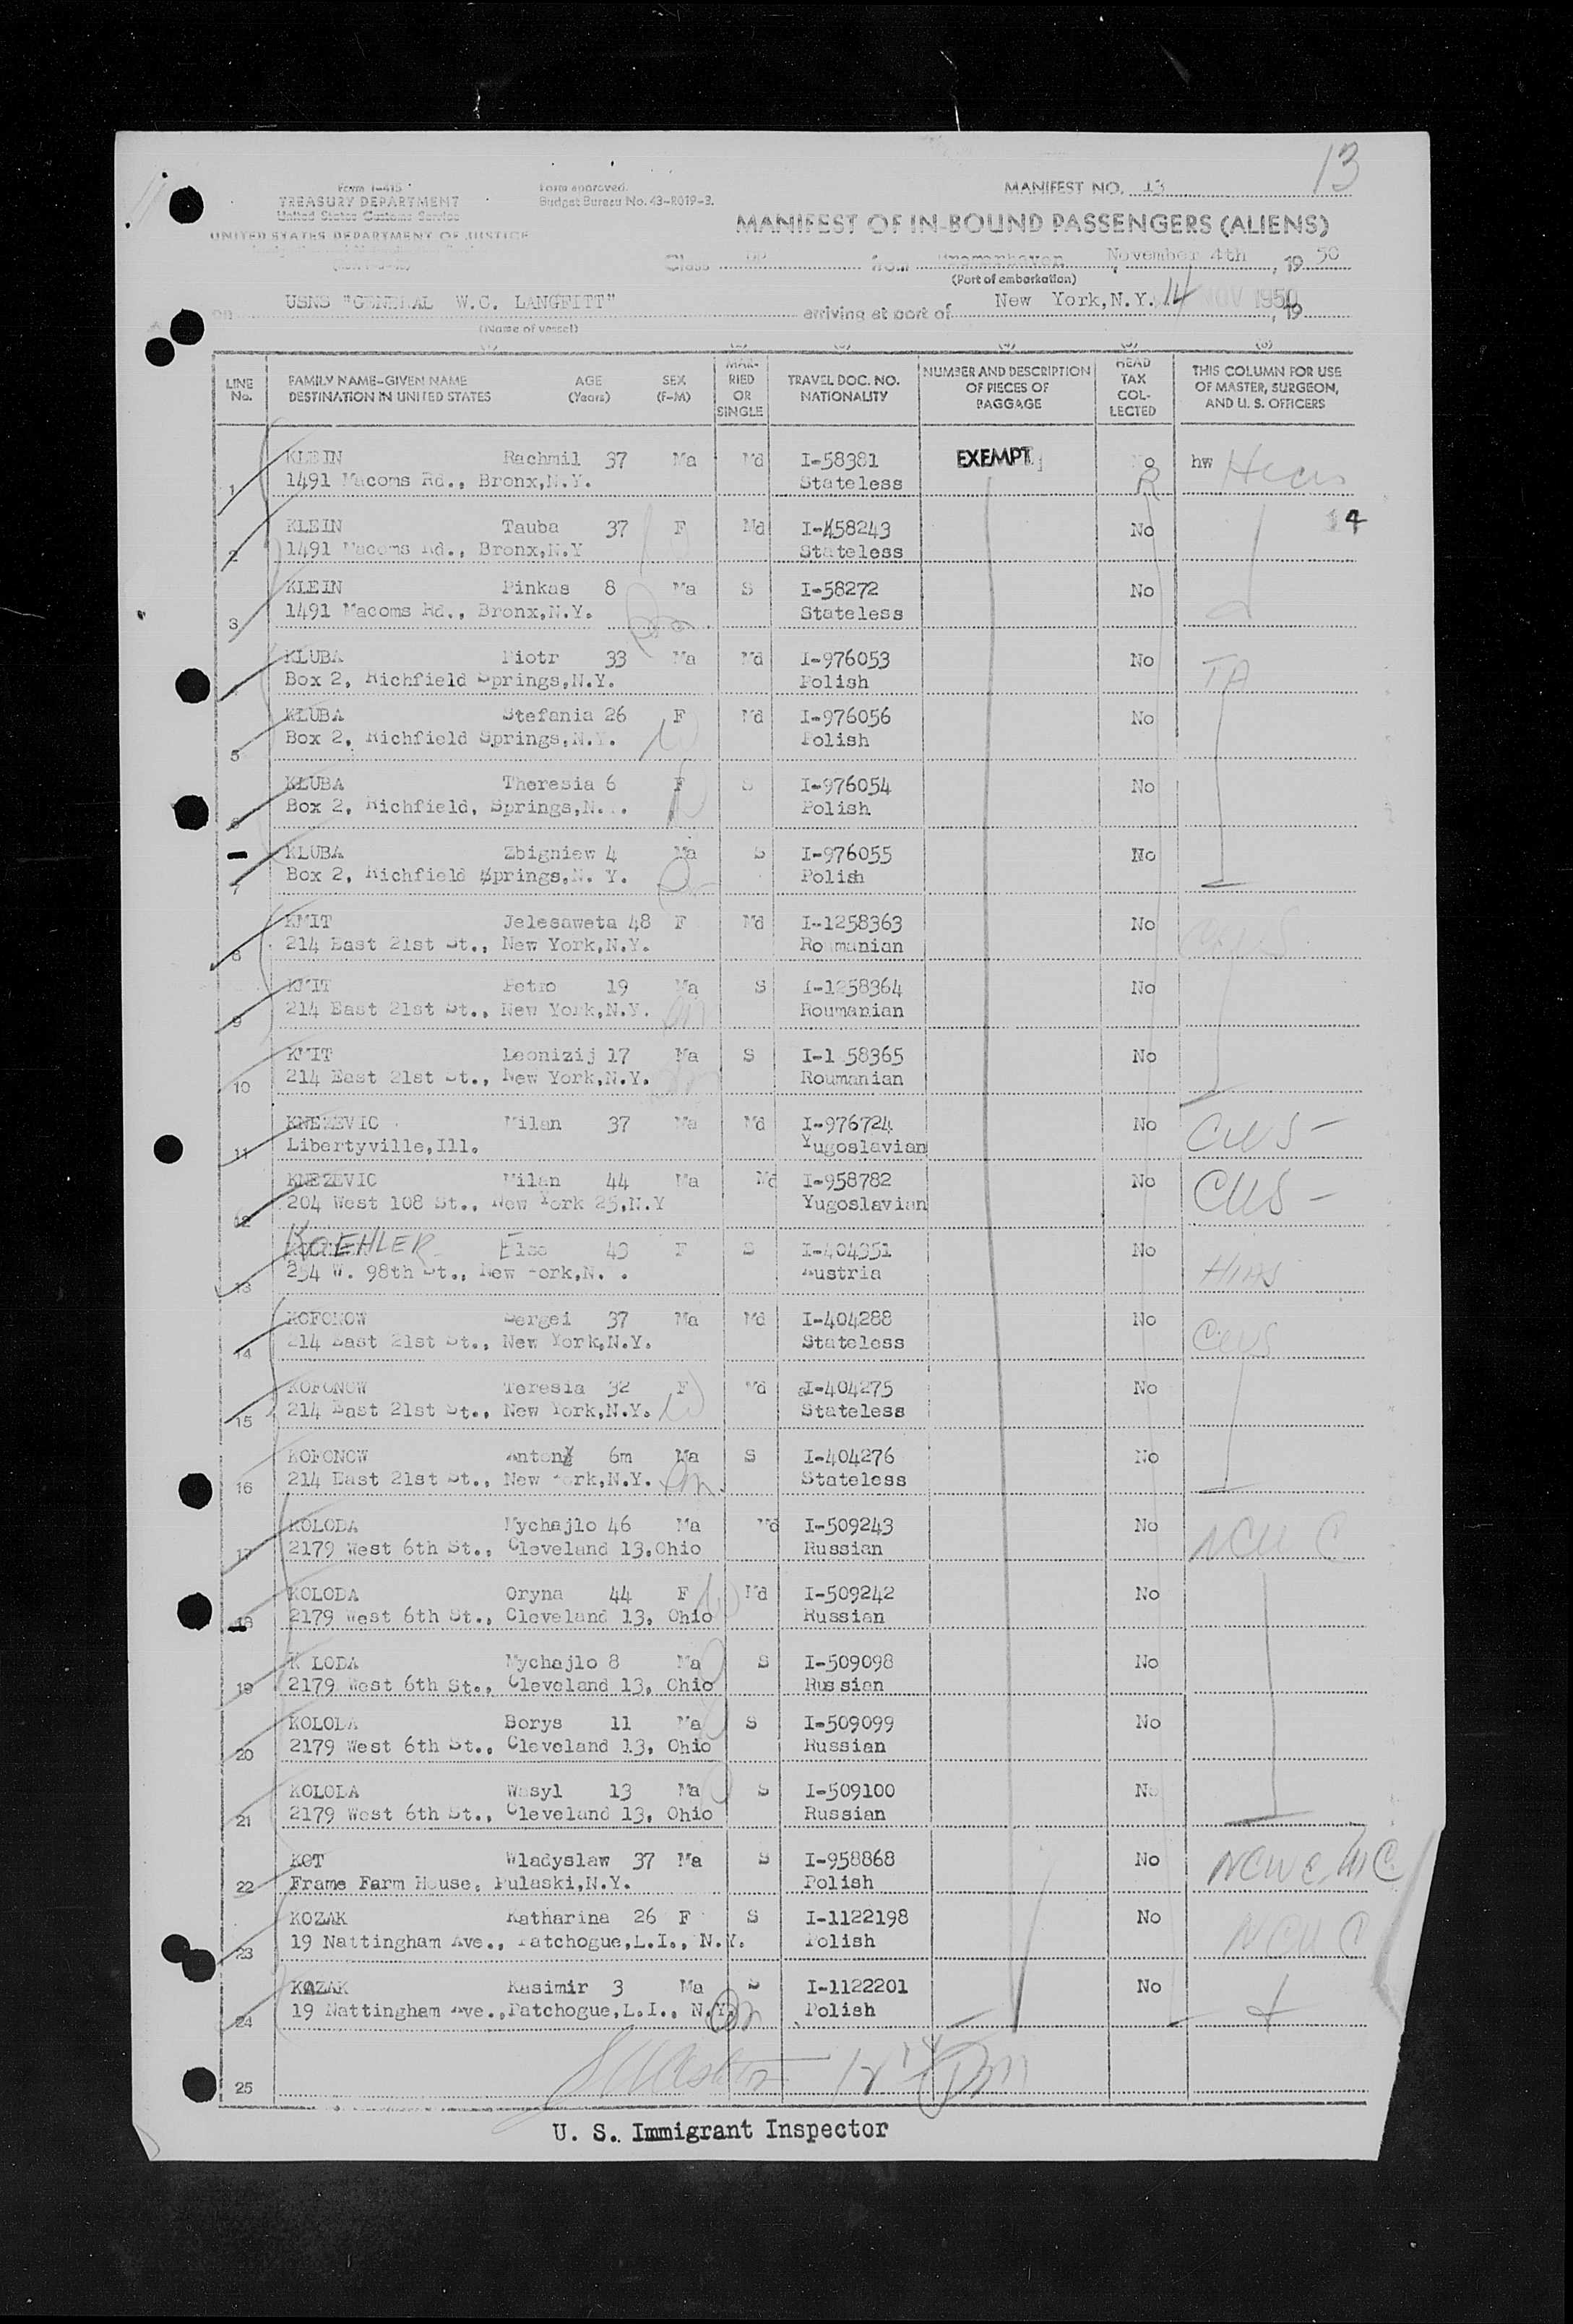 13
Form I-415
TREASURY DEPARTMENT
United States Customs Service
UNITED STATES DEPARTMENT OF JUSTICE
Form approved.
Budget Bureau No. 43-R019-3.
MANIFEST NO. 13
MANIFEST OF IN-BOUND PASSENGERS (ALIENS)
Class DP from Bremerhaven November 4th, 1950
(Port of embarkation)
on USNS "GENERAL W.C. LANGFITT" arriving at port of New York,N.Y. 14 NOV 1950, 19
(Name of vessel)
(1) (2) (3) (4) (5) (6)
LINE No. FAMILY NAME-GIVEN NAME DESTINATION IN UNITED STATES AGE (Years) SEX (F-M) MARRIED OR SINGLE TRAVEL DOC. NO. NATIONALITY NUMBER AND DESCRIPTION OF PIECES OF BAGGAGE HEAD TAX COLLECTED THIS COLUMN FOR USE OF MASTER, SURGEON, AND U. S. OFFICERS
KLEIN Rachmil 37 Ma Md I-58381 EXEMPT No hw Hias
1 1491 Macoms Rd., Bronx,N.Y. Stateless R
KLEIN Tauba 37 F Md I-58243 No 4
2 1491 Macoms Rd., Bronx,N.Y Stateless
KLEIN Pinkas 8 Ma S I-58272 No
3 1491 Macoms Rd., Bronx,N.Y. Stateless
KLUBA Piotr 33 Ma Md I-976053 No TA
Box 2, Richfield Springs,N.Y. Polish
KLUBA Stefania 26 F Md I-976056 No
5 Box 2, Richfield Springs,N.Y. Polish
KLUBA Theresia 6 F S I-976054 No
6 Box 2, Richfield, Springs,N. . Polish
KLUBA Zbigniew 4 Ma S I-976055 No
7 Box 2, Richfield Springs,N. Y. Polish
KMIT Jelesaweta 48 F Md I-1258363 No CWS
8 214 East 21st St., New York,N.Y. Roumanian
KMIT Petro 19 Ma S I-1258364 No
9 214 East 21st St., New York,N.Y. Roumanian
KMIT Leonizij 17 Ma S I-1 58365 No
10 214 East 21st St., New York,N.Y. Roumanian
KNEZEVIC Milan 37 Ma Md I-976724 No CWS -
11 Libertyville,Ill. Yugoslavian
KNEZEVIC Milan 44 Ma Md I-958782 No CWS -
12 204 West 108 St., New York 25,N.Y Yugoslavian
KOEHLER Else 43 F S I-404351 No HIAS
13 254 W. 98th St., New York,N. . Austria
KOFONOW Sergei 37 Ma Md I-404288 No CWS
14 214 East 21st St., New York,N.Y. Stateless
KOFONOW Teresia 32 F Md I-404275 No
15 214 East 21st St., New York,N.Y. Stateless
KOFONOW Anton 6m Ma S I-404276 No
16 214 East 21st St., New York,N.Y. Stateless
KOLODA Mychajlo 46 Ma Md I-509243 No NCWC
17 2179 West 6th St., Cleveland 13,Ohio Russian
KOLODA Oryna 44 F Md I-509242 No
18 2179 West 6th St., Cleveland 13, Ohio Russian
K LODA Mychajlo 8 Ma S I-509098 No
19 2179 West 6th St., Cleveland 13, Ohio Russian
KOLODA Borys 11 Ma S I-509099 No
20 2179 West 6th St., Cleveland 13, Ohio Russian
KOLODA Wasyl 13 Ma S I-509100 No
21 2179 West 6th St., Cleveland 13, Ohio Russian
KOT Wladyslaw 37 Ma S I-958868 No NCWC
22 Frame Farm House, Pulaski,N.Y. Polish
KOZAK Katharina 26 F S I-1122198 No NCWC
23 19 Nattingham Ave., Patchogue,L.I., N.Y. Polish
KOZAK Kasimir 3 Ma S I-1122201 No
24 19 Nattingham Ave.,Patchogue,L.I., N.Y. Polish
25
U. S. Immigrant Inspector